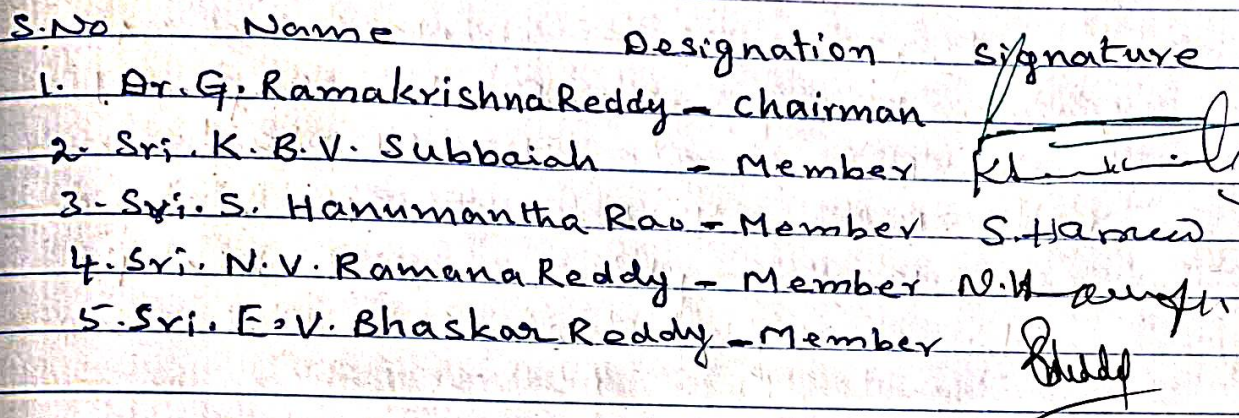 S.No Name Designation Signature
1. Dr. G. Ramakrishna Reddy - Chairman
2. Sri. K. B. V. Subbaiah - Member
3. Sri. S. Hanumantha Rao - Member
4. Sri. N. V. Ramana Reddy - Member
5. Sri. E. V. Bhaskar Reddy - Member